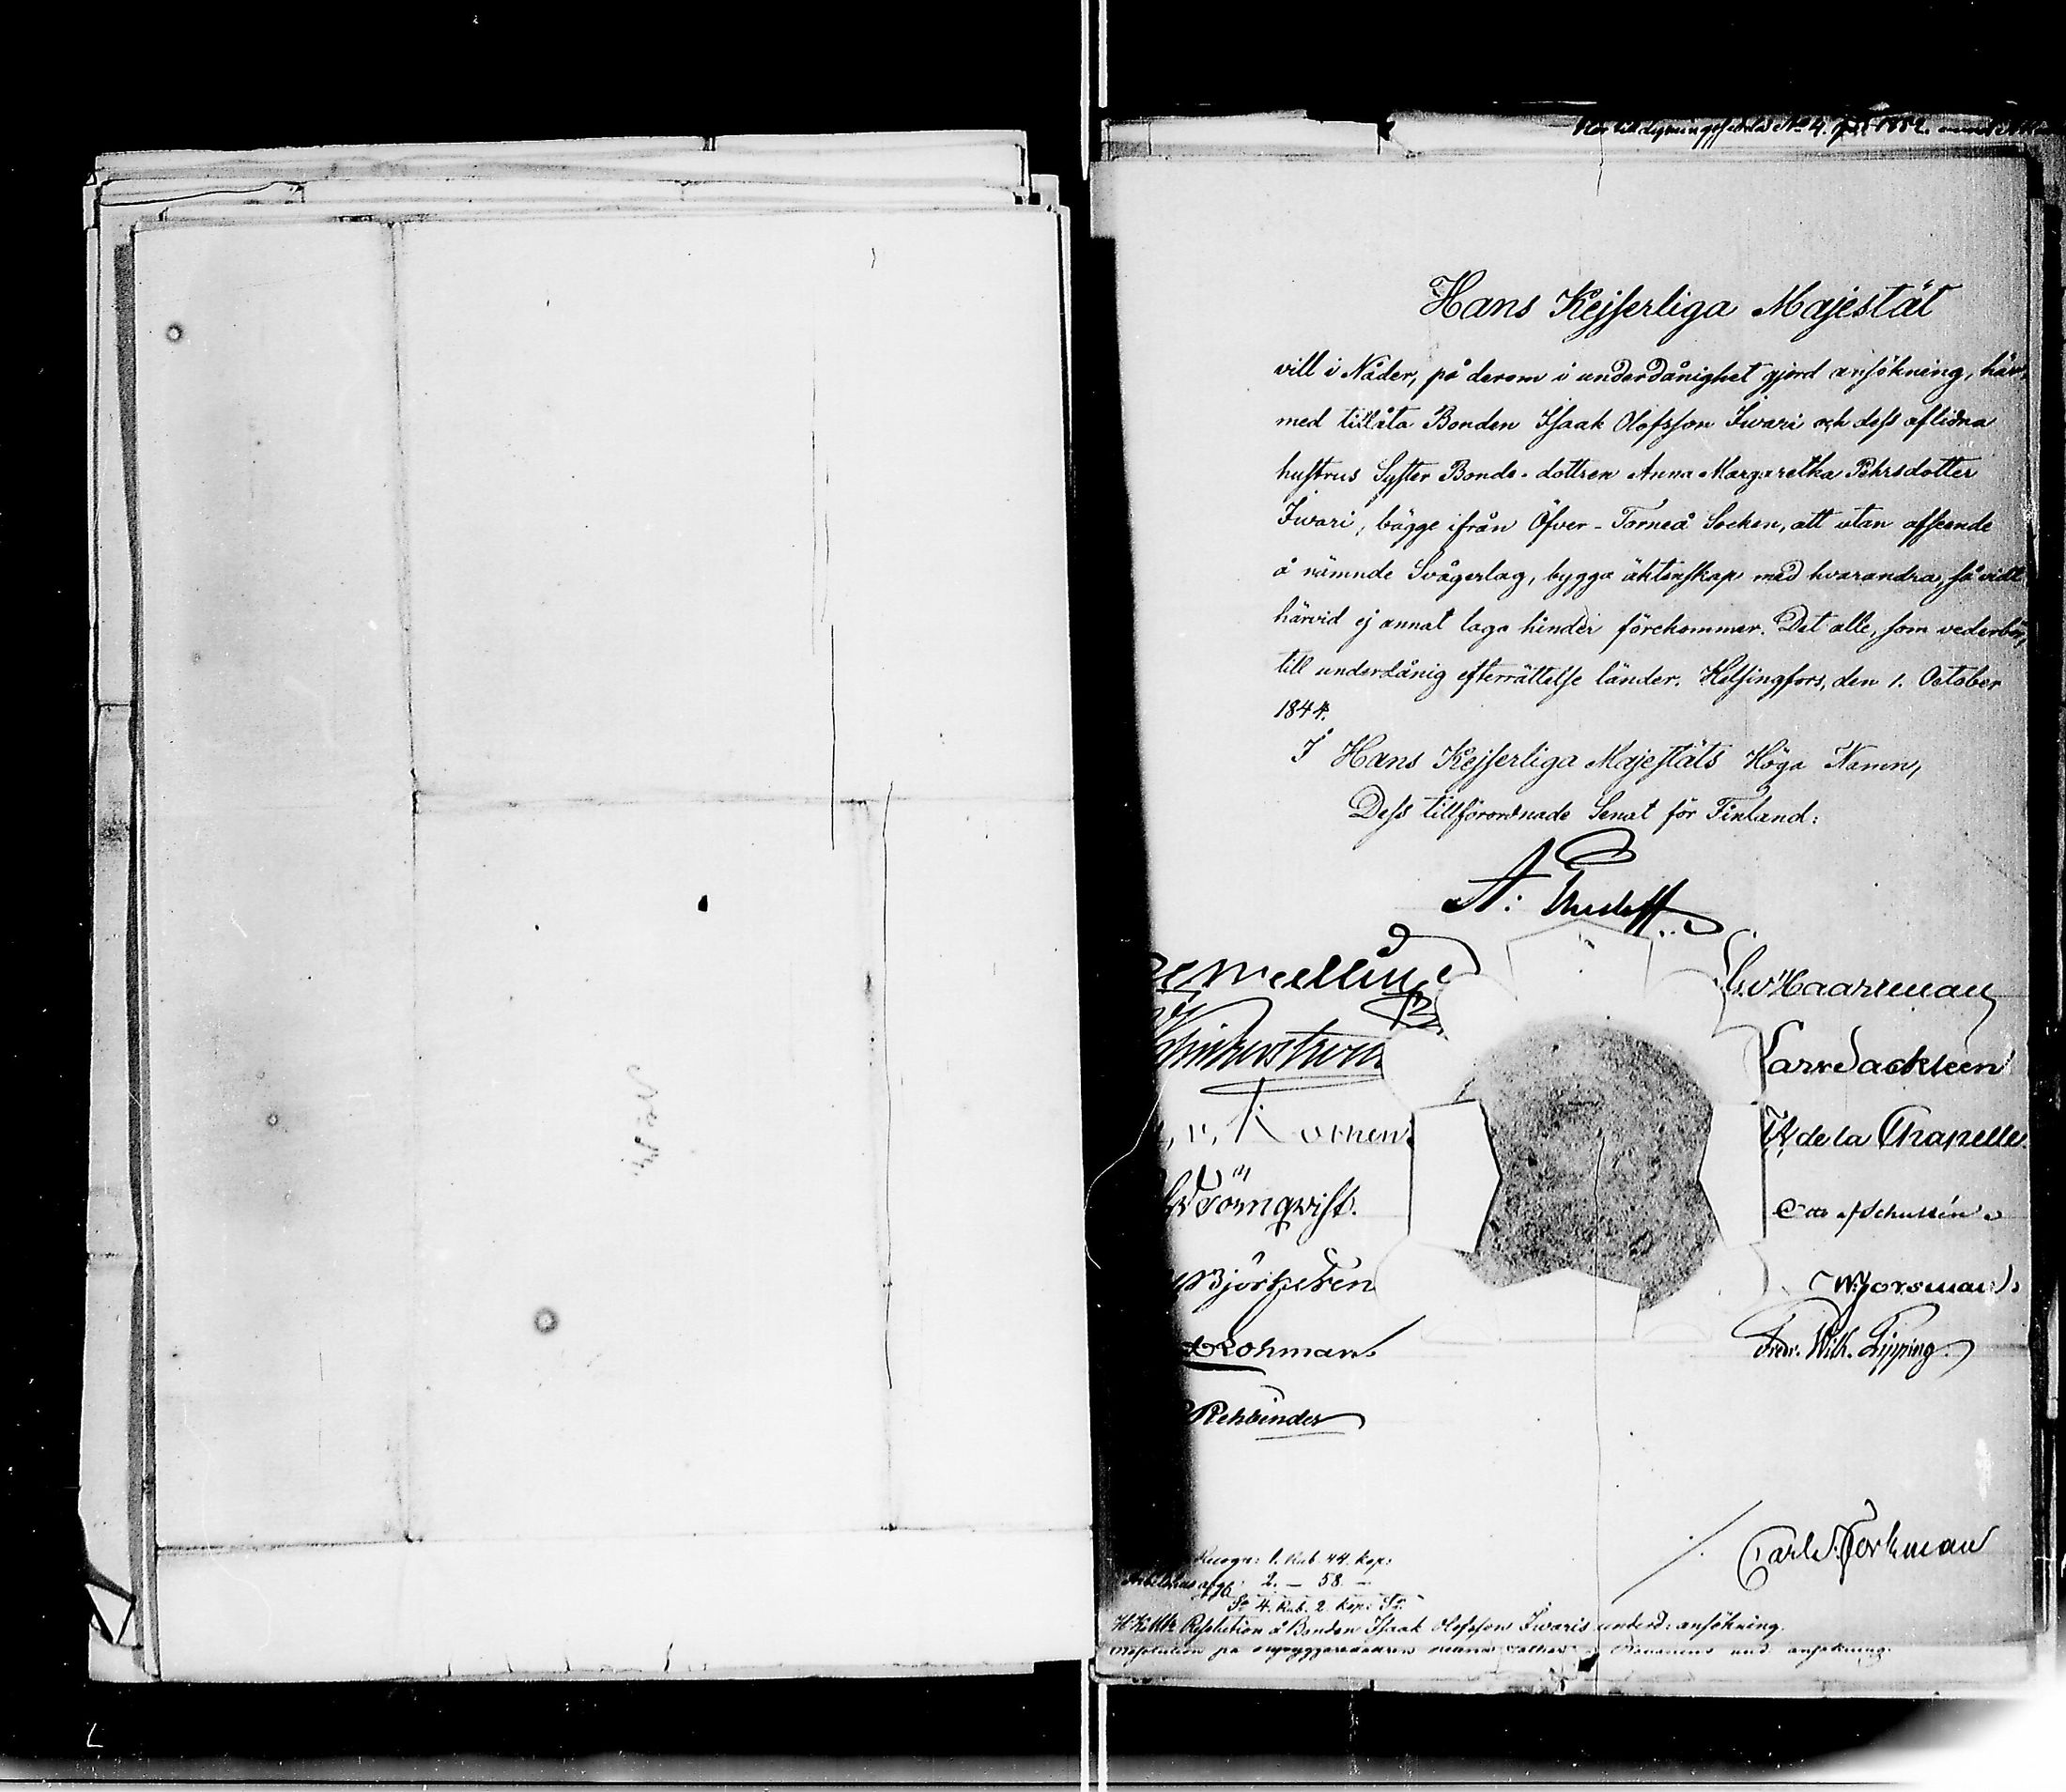 Hans Kejserliga Majestät
vill i Nåder, på derom i underdånighet gjord ansökning, här-
med tillåta Bonden Isaak Olofsson Iwari och dess aflidna
hustrus Syster Bonde-dottren Anna Margaretha Pehrsdotter
Iwari, bägge ifrån Öfver-Torneå Socken, att utan afseende
å nämnde Svågerlag, bygga äktenskap med hvarandra, så vidt
härvid ej annat laga hinder förekommer. Det alle, som vederbör,
till underdånig efterrättelse länder. Helsingfors, den 1. October
1844.
I Hans Kejserliga Majestäts Höga Namn,
Dess tillförordnade Senat för Finland:
A:
Mellin
Haartman
Klinckowström
Lars Sackleen
Kothen
A de la Chapelle
Törnqvist.
Björksten
Lohman
Fredr. Wilh. Pipping
Rehbinder
Carl Forsman
Recogn: 1. Rub. 44. kop:
2. — 58. —
Sa 4. Rub. 2. kop: Sr.
Resolution å Bonden Isaak Olofsson Iwaris underd: ansökning.
Resolution på und. ansökning.